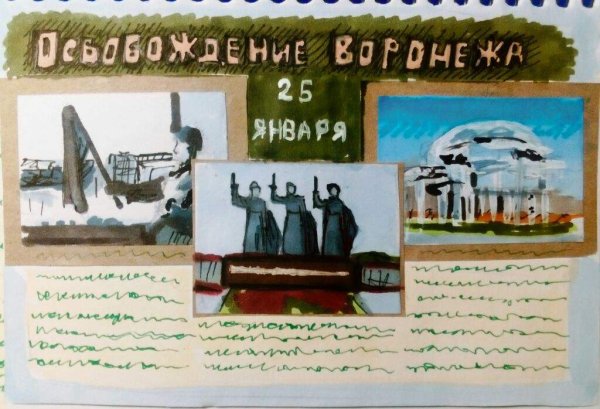 Освобождение Воронежа
25
января